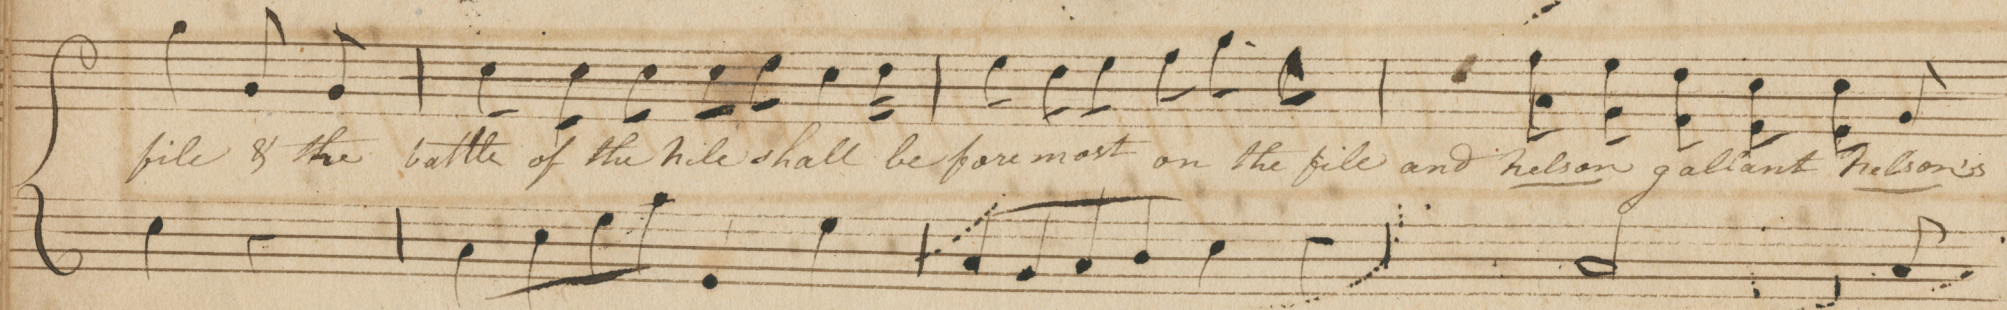 file & the battle of the nile shall be foremost on the file and nelson gallant nelson's